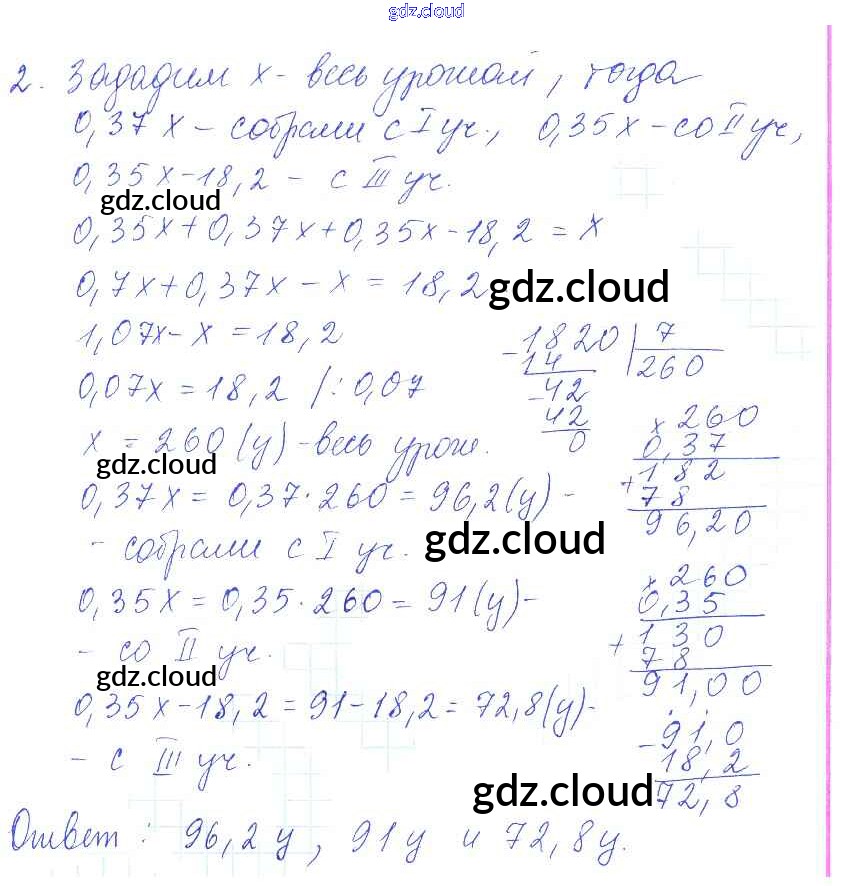 gdz.cloud
gdz.cloud
2. Зададим x - весь урожай, тогда
0,37x - собрали с I уч., 0,35x - со II уч,
0,35x-18,2 - с III уч.
gdz.cloud
0,35x+0,37x+0,35x-18,2=x
0,7x+0,37x-x=18,2
gdz.cloud
1,07x-x=18,2
0,07x=18,2 /:0,07
x=260(ц)-весь урож.
gdz.cloud
0,37x=0,37·260=96,2(ц)-
- собрали с I уч.
gdz.cloud
0,35x=0,35·260=91(ц)-
- со II уч.
gdz.cloud
0,35x-18,2=91-18,2=72,8(ц)-
- с III уч.
gdz.cloud
-1820 | 7
14 260
-42
42
0
×260
0,37
+182
78
96,20
×260
0,35
+130
78
91,00
-91,0
18,2
72,8
Ответ: 96,2ц, 91ц и 72,8ц.